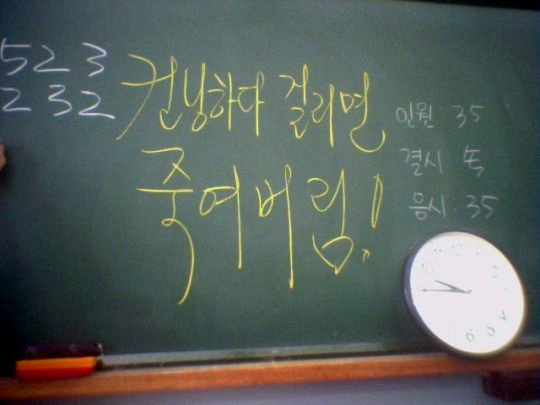 523
232
컨닝하다 걸리면
죽여버림!
인원 35
결시 독
응시 35
12
1
2
3
4
5
6
7
10
11